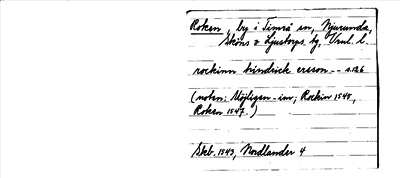 Roken, by i Timrå sn, Njurunda,
Sköns o Ljustorps tg, Vrnl. l.
rockinn hindrick ersson -- s.126
(noten: Möjligen -inn; Rockin 1545,
Roken 1547.)
Skb. 1543, Nordlander 4